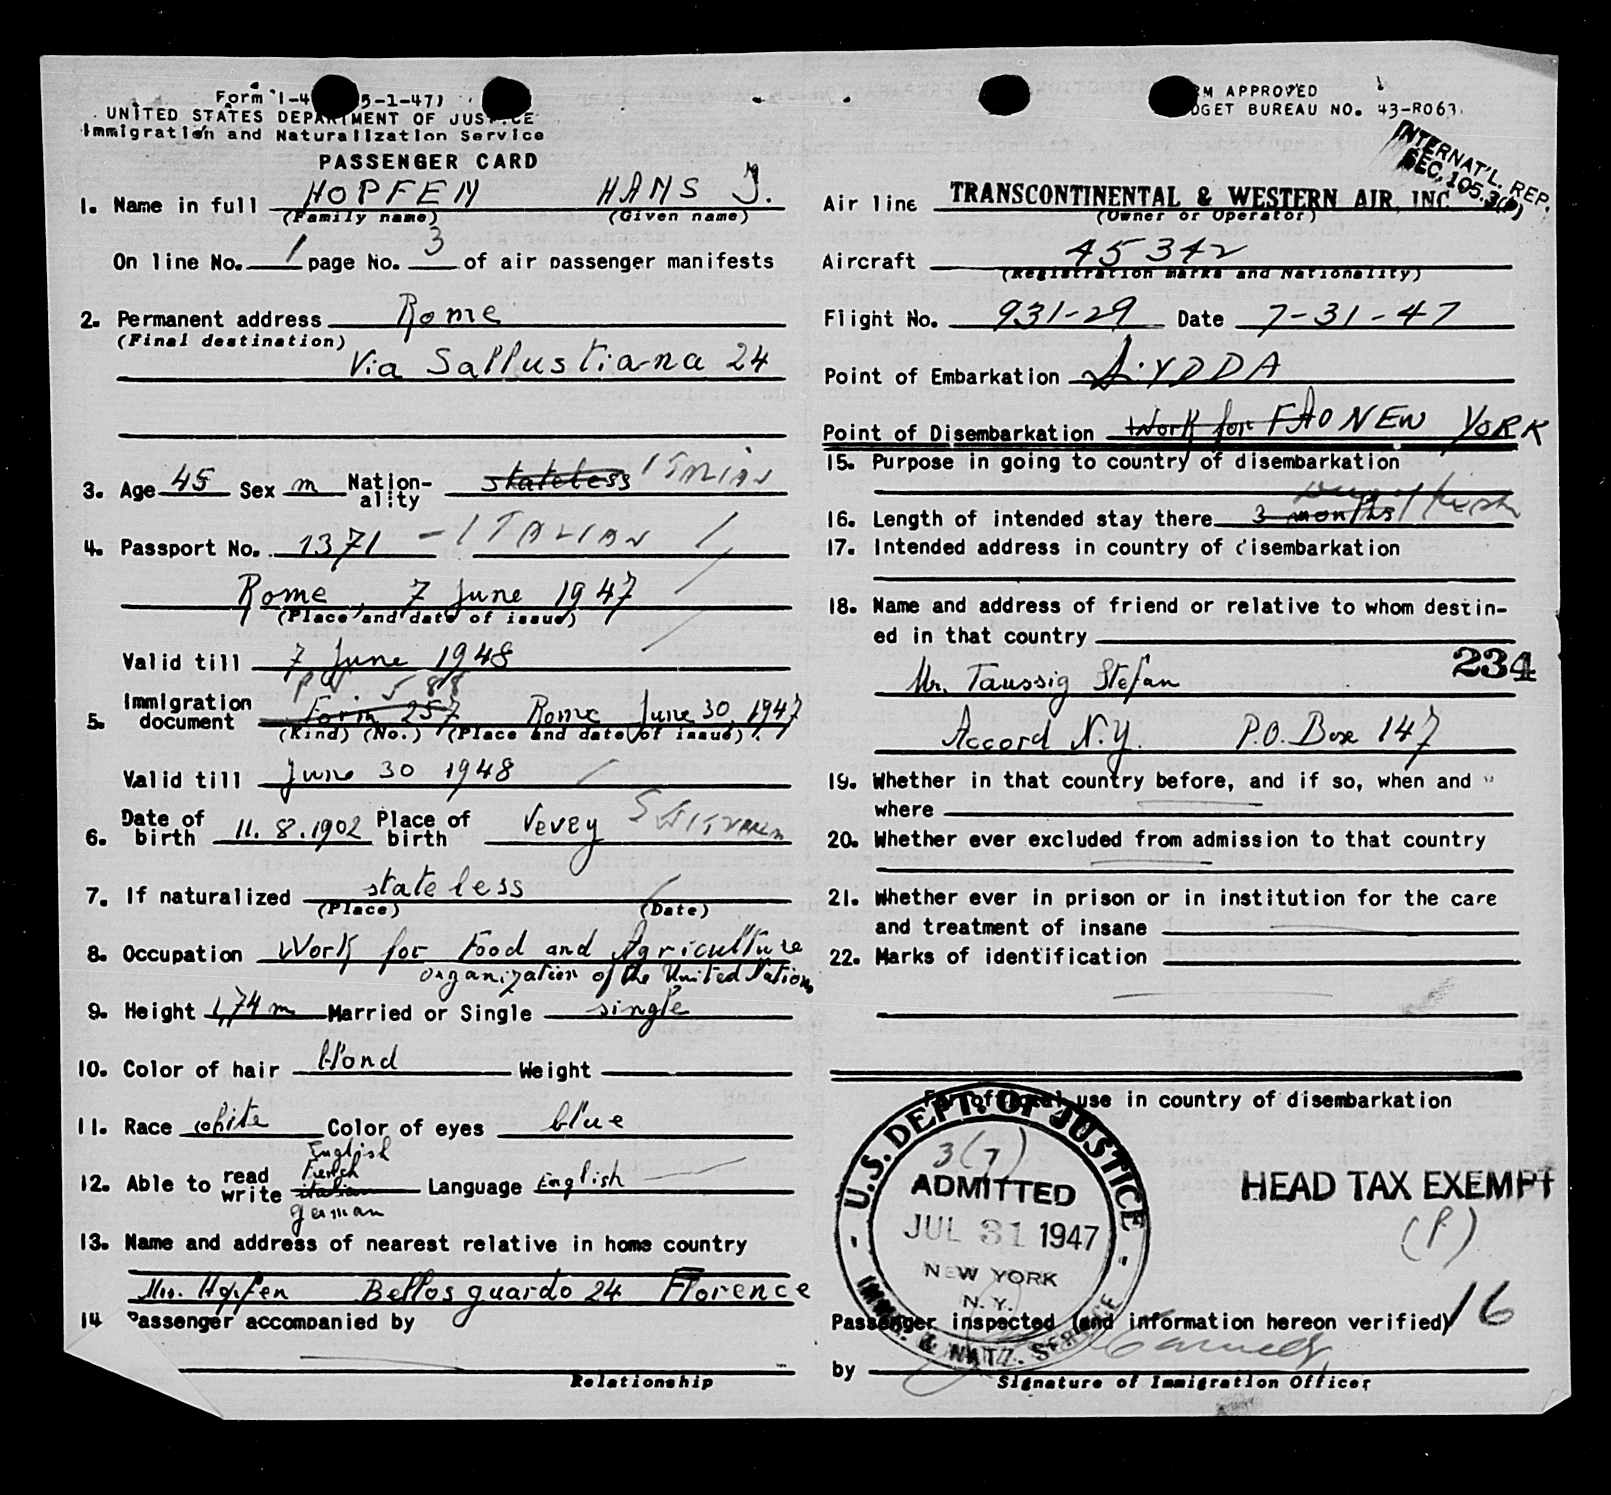 UNITED STATES DEPARTMENT OF JUSTICE
Immigration and Naturalization Service
PASSENGER CARD
1. Name in full HOPFEN HANS J.
(Family name) (Given name)
On line No. 1 page No. 3 of air passenger manifests
2. Permanent address Rome
(Final destination)
Via Sallustiana 24
3. Age 45 Sex m Nation-ality stateless ITALIAN
4. Passport No. 1371 - ITALIAN
Rome, 7 June 1947
(Place and date of issue)
Valid till 7 June 1948
5. Immigration document Form 257 Rome June 30, 1947
(Kind) (No.) (Place and date of issue)
Valid till June 30 1948
6. Date of birth 11.8.1902 Place of birth Vevey
7. If naturalized stateless
(Place) (Date)
8. Occupation Work for Food and Agriculture
organization of the United Nations
9. Height 1,74 m Married or Single single
10. Color of hair blond Weight
11. Race white Color of eyes blue
12. Able to read write English French italian german Language English
13. Name and address of nearest relative in home country
Hopfen Bellosguardo 24 Florence
14 Passenger accompanied by
Relationship
FORM APPROVED
BUDGET BUREAU NO. 43-R063.
INTERNAT'L. REP.
SEC. 105.3(P)
Air line TRANSCONTINENTAL & WESTERN AIR, INC.
(Owner or Operator)
Aircraft 45342
(Registration marks and Nationality)
Flight No. 931-29 Date 7-31-47
Point of Embarkation LYDDA
Point of Disembarkation Work for FAO NEW YORK
15. Purpose in going to country of disembarkation
16. Length of intended stay there 3 months
17. Intended address in country of disembarkation
18. Name and address of friend or relative to whom destin-
ed in that country
234
Mr. Taussig Stefan
Accord N.Y. P.O. Box 147
19. Whether in that country before, and if so, when and
where
20. Whether ever excluded from admission to that country
21. Whether ever in prison or in institution for the care
and treatment of insane
22. Marks of identification
For official use in country of disembarkation
U.S. DEPT. OF JUSTICE
3(7)
ADMITTED
JUL 31 1947
NEW YORK
N. Y.
IMMIG. & NATZ. SERVICE
HEAD TAX EXEMPT
(P)
Passenger inspected (and information hereon verified) 16
by
Signature of Immigration Officer